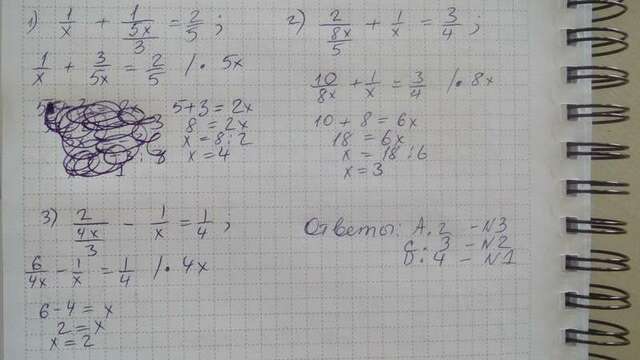 1) 1/x + 1/(5x/3) = 2/5 ;
1/x + 3/5x = 2/5 /· 5x
5+3 = 2x
8 = 2x
x = 8 : 2
x = 4
2) 2/(8x/5) + 1/x = 3/4 ;
10/8x + 1/x = 3/4 /· 8x
10 + 8 = 6x
18 = 6x
x = 18 : 6
x = 3
3) 2/(4x/3) - 1/x = 1/4 ;
6/4x - 1/x = 1/4 /· 4x
6 - 4 = x
2 = x
x = 2
Ответы: A. 2 - N3
C. 3 - N2
D. 4 - N1